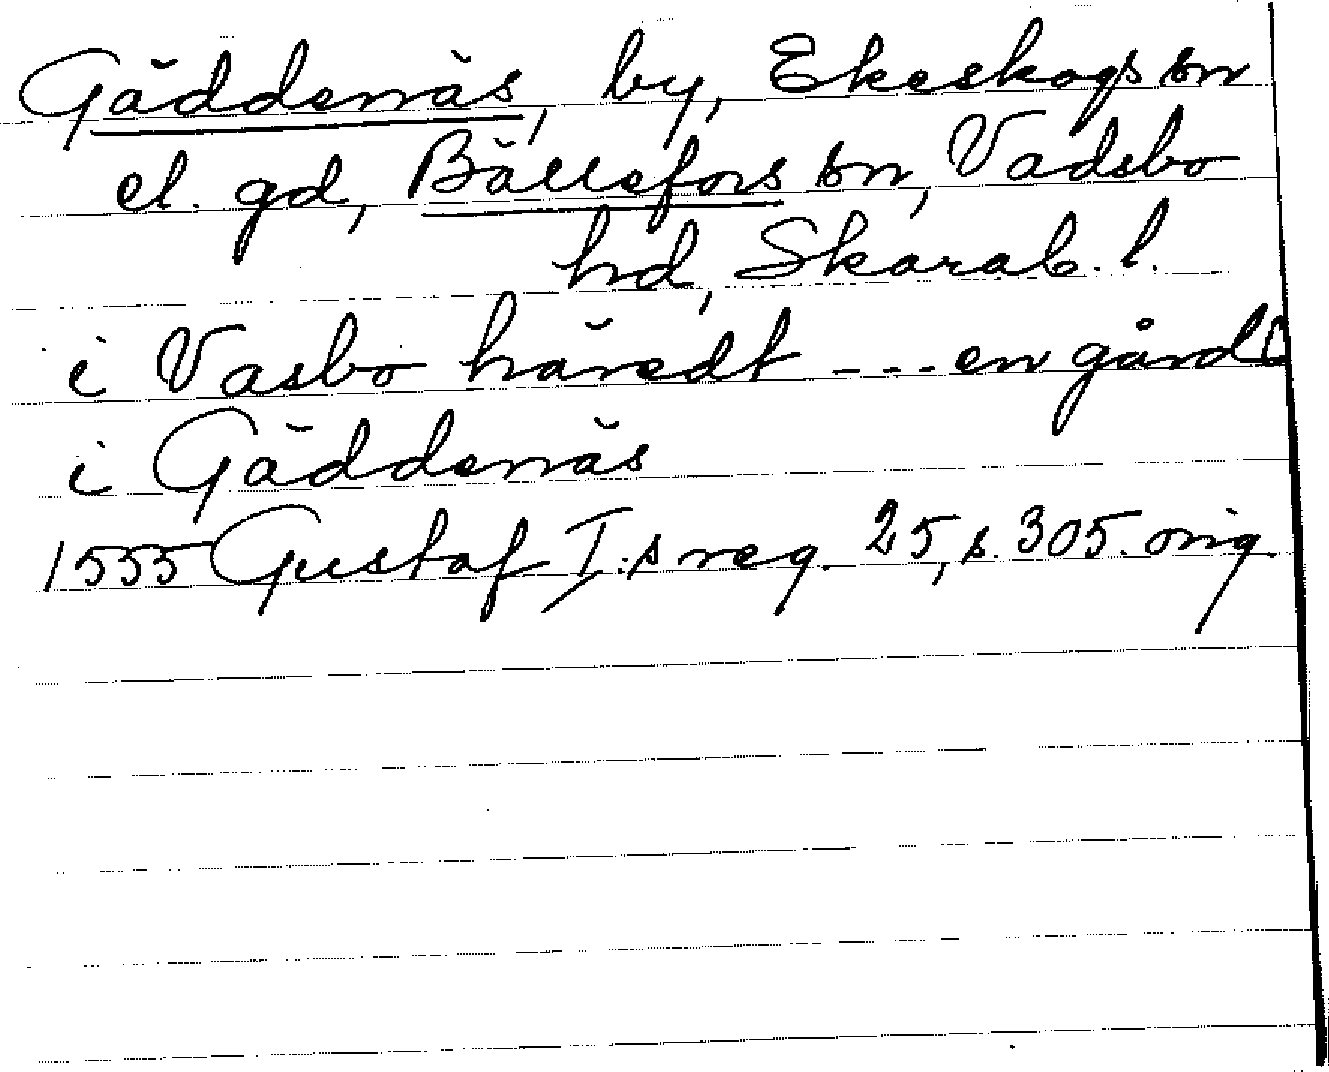 Gäddenäs, by, Ekeskogs sn
el. gd, Bällefors sn, Vadsbo
hd, Skarab. l.
i Vasbo häredt --- en gårdt
i Gäddenäs
1555 Gustaf I:s reg. 25, s. 305. orig.